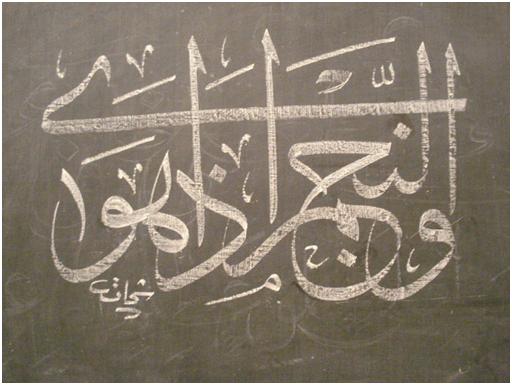 وَالنَّجْمِ إِذَا هَوَى
شحاته